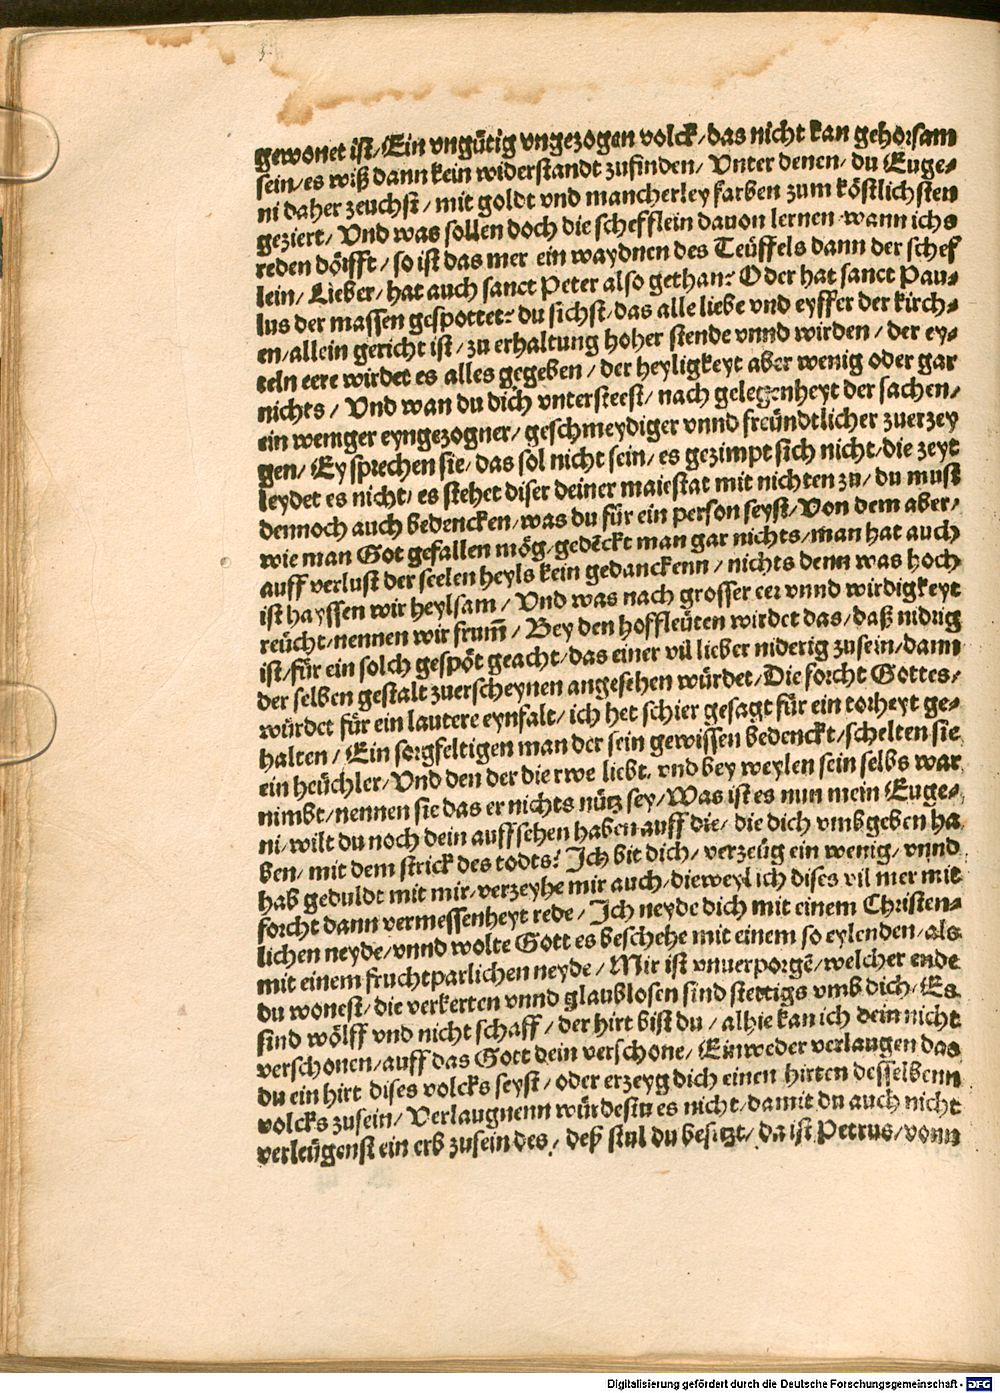 gewonet ist/ Ein vngütig vngezogen volck/ das nicht kan gehorsam
sein/ es wiß dann kein widerstandt zufinden/ Vnter denen/ du Euge⸗
ni daher zeuchst/ mit goldt vnd mancherley farben zum köstlichsten
geziert/ Vnd was sollen doch die schefflein dauon lernen wann ichs
reden dörfft/ so ist das mer ein waydnen des Teüffels dann der schef
lein/ Lieber/ hat auch sanct Peter also gethan? Oder hat sanct Pau⸗
lus der massen gespottet? du sichst/ das alle liebe vnd eyffer der kirch⸗
en/ allein gericht ist/ zu erhaltung hoher stende vnnd wirden/ der ey⸗
teln eere wirdet es alles gegeben/ der heyligkeyt aber wenig oder gar
nichts/ Vnd wan du dich vntersteest/ nach gelegenheyt der sachen/
ein weniger eyngezogner/ geschmeydiger vnnd freündtlicher zuerzey
gen/ Ey sprechen sie/ das sol nicht sein/ es gezimpt sich nicht/ die zeyt
leydet es nicht/ es stehet diser deiner maiestat mit nichten zu/ du must
dennoch auch bedencken/ was du für ein person seyst/ Von dem aber/
wie man Got gefallen mög/ gedēckt man gar nichts/ man hat auch
auff verlust der seelen heyls kein gedanckenn/ nichts denn was hoch
ist hayssen wir heylsam/ Vnd was nach grosser eer vnnd wirdigkeyt
reücht/ nennen wir frum̄/ Bey den hoffleüten wirdet das/ daß nidrig
ist/ für ein solch gespöt geacht/ das einer vil lieber niderig zusein/ dann
der selben gestalt zuerscheynen angesehen würdet/ Die forcht Gottes/
würdet für ein lautere eynfalt/ ich het schier gesagt für ein torheyt ge⸗
halten/ Ein sorgfeltigen man der sein gewissen bedenckt/ schelten sie
ein heüchler/ Vnd den der die rwe liebt/ vnd bey weylen sein selbs war
nimbt/ nennen sie das er nichts nütz sey/ Was ist es nun mein Euge⸗
ni/ wilt du noch dein auffsehen haben auff die/ die dich vmbgeben ha
ben/ mit dem strick des todts? Ich bit dich/ verzeüg ein wenig/ vnnd
hab geduldt mit mir/ verzeyhe mir auch/ dieweyl ich dises vil mer mit
forcht dann vermessenheyt rede/ Ich neyde dich mit einem Christen⸗
lichen neyde/ vnnd wolte Gott es beschehe mit einem so eylenden/ als
mit einem fruchtparlichen neyde/ Mir ist vnuerporgē/ welcher ende
du wonest/ die verkerten vnnd glaublosen sind stettigs vmb dich/ Es
sind wölff vnd nicht schaff/ der hirt bist du/ alhie kan ich dein nicht
verschonen/ auff das Gott dein verschone/ Einweder verlaugen das
du ein hirt dises volcks seyst/ oder erzeyg dich einen hirten desselbenn
volcks zusein/ Verlaugnenn würdestu es nicht/ damit du auch nicht
verleügenst ein erb zusein des/ deß stul du besitzt/ da ist Petrus/ vonn
Digitalisierung gefördert durch die Deutsche Forschungsgemeinschaft - DFG